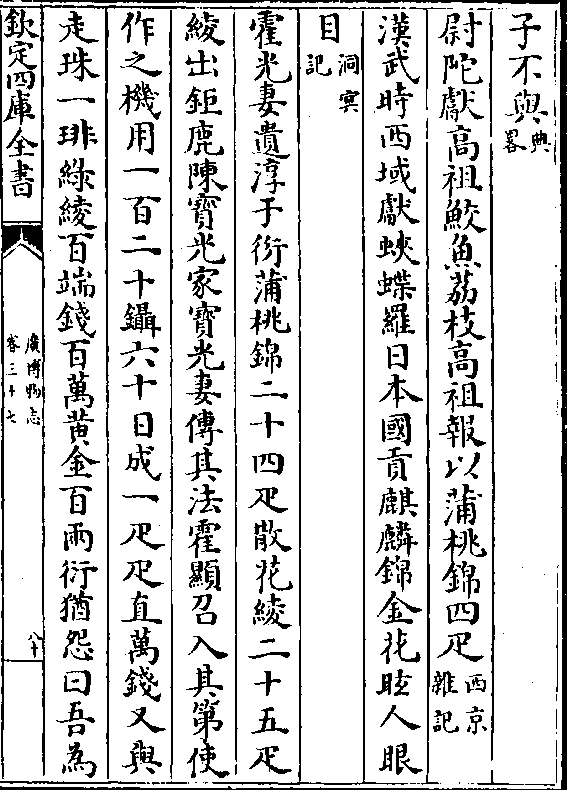 子不與典畧
尉陀獻髙祖鮫魚荔枝髙祖報以蒲桃錦四疋西京雜記
漢武時西域獻蛺蝶羅日本國貢麒麟錦金花眩人眼
目洞冥記
霍光妻遺淳于衍蒲桃錦二十四疋散花綾二十五疋
綾出鉅鹿陳寶光家寶光妻傳其法霍顯召入其第使
作之機用一百二十鑷六十日成一疋疋直萬錢又與
走珠一琲綠綾百端錢百萬黄金百兩衍猶怨曰吾為
欽定四庫全書
廣博物志
卷三十七
八十